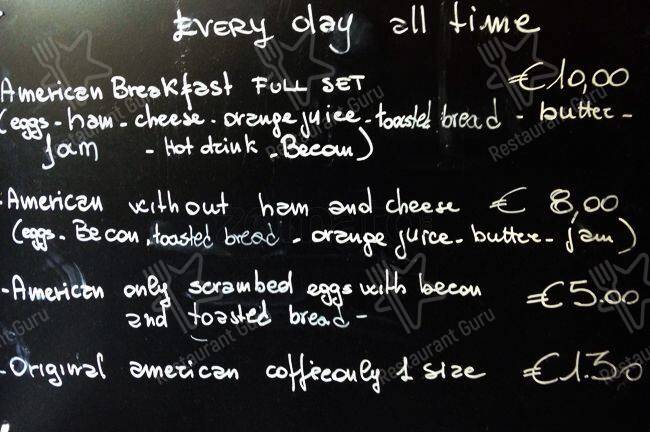 EVERY day all time
American Breakfast FULL SET €10,00
(eggs - ham - cheese - orange juice - toasted bread - butter -
jam - Hot drink - Becon)
- American without ham and cheese € 8,00
(eggs - Becon, toasted bread - orange juice - butter - jam)
- American only scrambed eggs with becon €5.00
and toasted bread -
- Original american coffee only 1 size €1.30
Restaurant Guru
Restaurant Guru
Restaurant Guru
Restaurant Guru
Restaurant Guru
Restaurant Guru